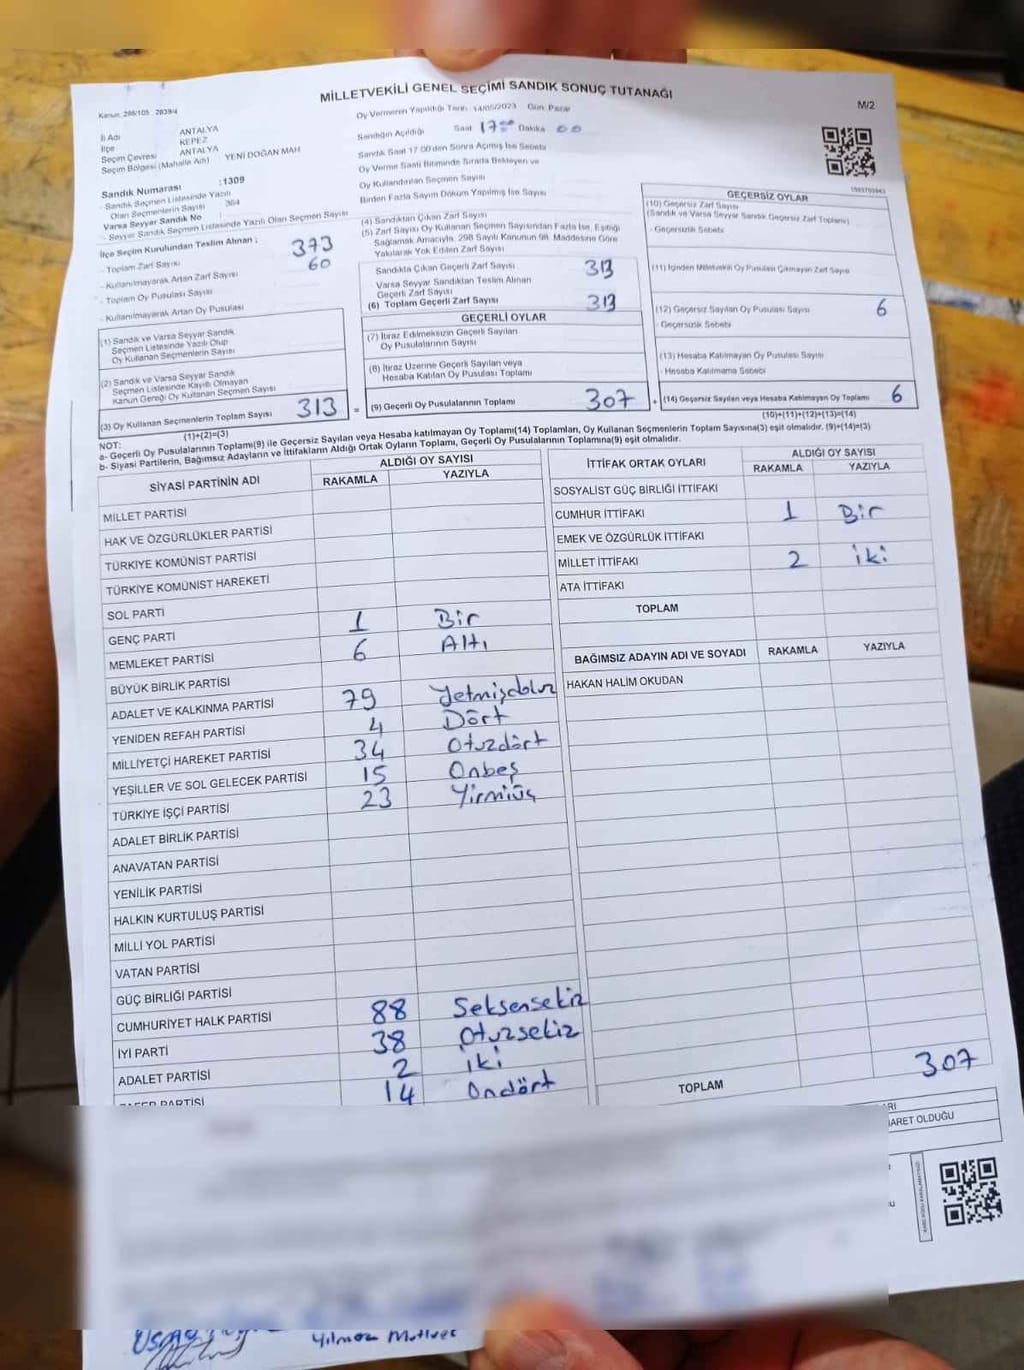 MİLLETVEKİLİ GENEL SEÇİMİ SANDIK SONUÇ TUTANAĞI
M/2
İl Adı ANTALYA
İlçe KEPEZ
Seçim Çevresi ANTALYA
Seçim Bölgesi (Mahalle Adı) YENİ DOĞAN MAH
Sandık Numarası :1309
Sandık Seçmen Listesinde Yazılı
Olan Seçmenlerin Sayısı 364
Varsa Seyyar Sandık No
Seyyar Sandık Seçmen Listesinde Yazılı Olan Seçmen Sayısı
İlçe Seçim Kurulundan Teslim Alınan ;
- Toplam Zarf Sayısı 373
- Kullanılmayarak Artan Zarf Sayısı 60
- Toplam Oy Pusulası Sayısı
- Kullanılmayarak Artan Oy Pusulası
(1) Sandık ve Varsa Seyyar Sandık
Seçmen Listesinde Yazılı Olup
Oy Kullanan Seçmenlerin Sayısı
(2) Sandık ve Varsa Seyyar Sandık
Seçmen Listesinde Kayıtlı Olmayan
Kanun Gereği Oy Kullanan Seçmen Sayısı
(3) Oy Kullanan Seçmenlerin Toplam Sayısı 313 =
(1)+(2)=(3)
Oy Vermenin Yapıldığı Tarih 14/05/2023 Gün Pazar
Sandığın Açıldığı Saat 17 00 Dakika 00
Sandık Saat 17.00'den Sonra Açılmış İse Sebebi
Oy Verme Saati Bitiminde Sırada Bekleyen ve
Oy Kullandırılan Seçmen Sayısı
Birden Fazla Sayım Döküm Yapılmış İse Sayısı
(4) Sandıktan Çıkan Zarf Sayısı
(5) Zarf Sayısı Oy Kullanan Seçmen Sayısından Fazla İse, Eşitliği
Sağlamak Amacıyla, 298 Sayılı Kanunun 98. Maddesine Göre
Yakılarak Yok Edilen Zarf Sayısı
Sandıkta Çıkan Geçerli Zarf Sayısı 313
Varsa Seyyar Sandıktan Teslim Alınan
Geçerli Zarf Sayısı
(6) Toplam Geçerli Zarf Sayısı 313
GEÇERLİ OYLAR
(7) İtiraz Edilmeksizin Geçerli Sayılan
Oy Pusulalarının Sayısı
(8) İtiraz Üzerine Geçerli Sayılan veya
Hesaba Katılan Oy Pusulası Toplamı
(9) Geçerli Oy Pusulalarının Toplamı 307 +
GEÇERSİZ OYLAR
(10) Geçersiz Zarf Sayısı
(Sandık ve Varsa Seyyar Sandık Geçersiz Zarf Toplamı)
- Geçersizlik Sebebi
(11) İçinden Milletvekili Oy Pusulası Çıkmayan Zarf Sayısı
(12) Geçersiz Sayılan Oy Pusulası Sayısı 6
- Geçersizlik Sebebi
(13) Hesaba Katılmayan Oy Pusulası Sayısı
- Hesaba Katılmama Sebebi
(14) Geçersiz Sayılan veya Hesaba Katılmayan Oy Toplamı 6
(10)+(11)+(12)+(13)=(14)
NOT:
a- Geçerli Oy Pusulalarının Toplamı(9) ile Geçersiz Sayılan veya Hesaba katılmayan Oy Toplamı(14) Toplamları, Oy Kullanan Seçmenlerin Toplam Sayısına(3) eşit olmalıdır. (9)+(14)=(3)
b- Siyasi Partilerin, Bağımsız Adayların ve İttifakların Aldığı Ortak Oyların Toplamı, Geçerli Oy Pusulalarının Toplamına(9) eşit olmalıdır.
SİYASİ PARTİNİN ADI ALDIĞI OY SAYISI
RAKAMLA YAZIYLA
MİLLET PARTİSİ
HAK VE ÖZGÜRLÜKLER PARTİSİ
TÜRKİYE KOMÜNİST PARTİSİ
TÜRKİYE KOMÜNİST HAREKETİ
SOL PARTİ
GENÇ PARTİ 1 Bir
MEMLEKET PARTİSİ 6 Altı
BÜYÜK BİRLİK PARTİSİ
ADALET VE KALKINMA PARTİSİ 79 Yetmişdokuz
YENİDEN REFAH PARTİSİ 4 Dört
MİLLİYETÇİ HAREKET PARTİSİ 34 Otuzdört
YEŞİLLER VE SOL GELECEK PARTİSİ 15 Onbeş
TÜRKİYE İŞÇİ PARTİSİ 23 Yirmiüç
ADALET BİRLİK PARTİSİ
ANAVATAN PARTİSİ
YENİLİK PARTİSİ
HALKIN KURTULUŞ PARTİSİ
MİLLİ YOL PARTİSİ
VATAN PARTİSİ
GÜÇ BİRLİĞİ PARTİSİ
CUMHURİYET HALK PARTİSİ 88 Seksensekiz
İYİ PARTİ 38 Otuzsekiz
ADALET PARTİSİ 2 iki
PARTİSİ 14 Ondört
İTTİFAK ORTAK OYLARI ALDIĞI OY SAYISI
RAKAMLA YAZIYLA
SOSYALİST GÜÇ BİRLİĞİ İTTİFAKI
CUMHUR İTTİFAKI 1 Bir
EMEK VE ÖZGÜRLÜK İTTİFAKI
MİLLET İTTİFAKI 2 iki
ATA İTTİFAKI
TOPLAM
BAĞIMSIZ ADAYIN ADI VE SOYADI RAKAMLA YAZIYLA
HAKAN HALİM OKUDAN
TOPLAM 307
ARET OLDUĞU
Yılmaz